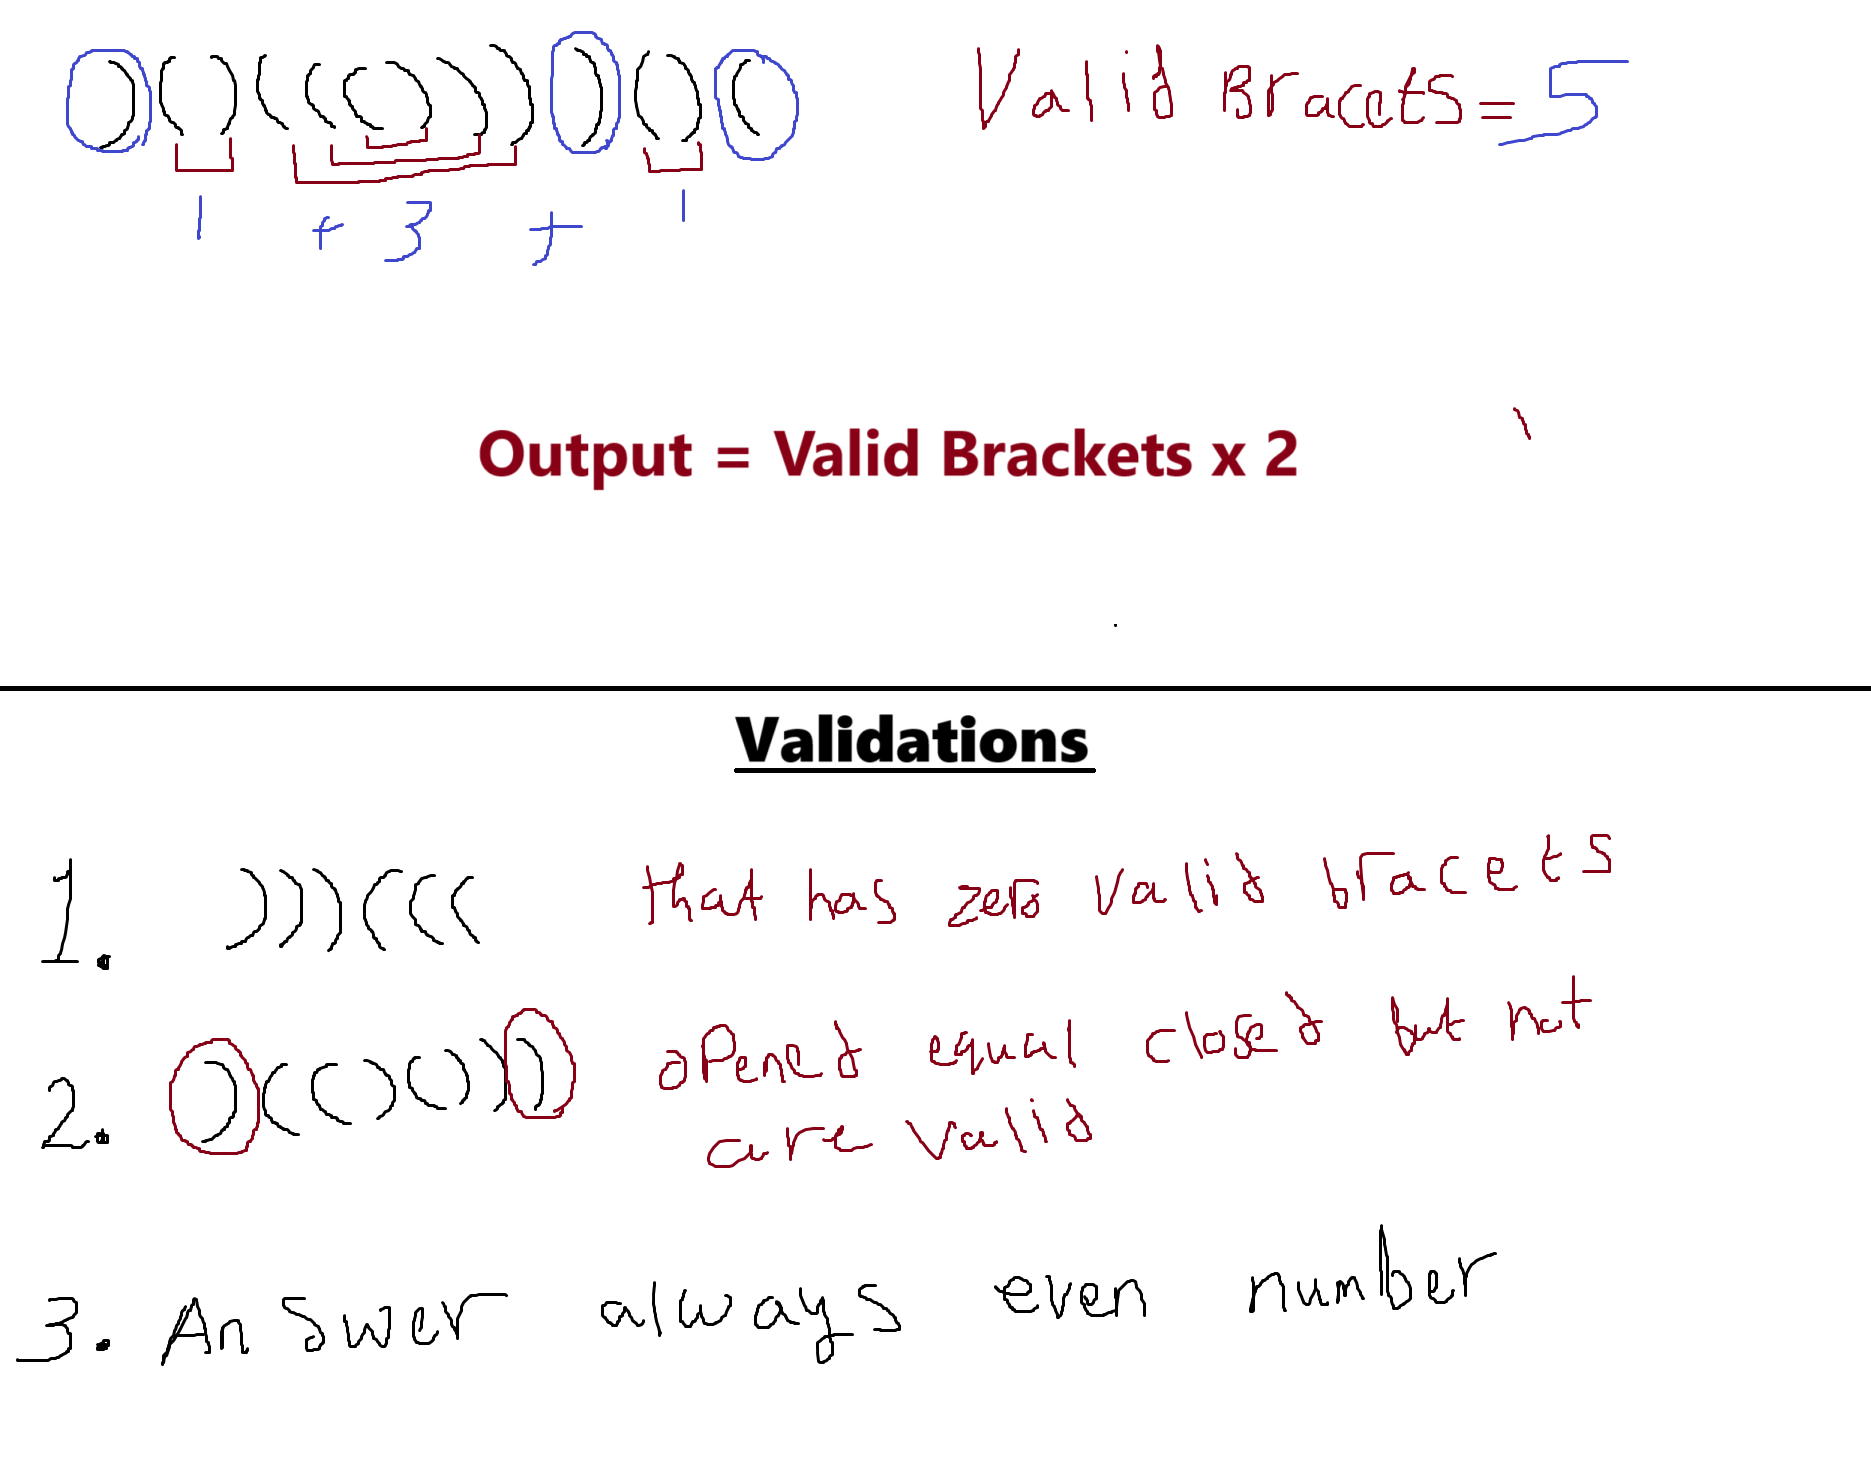 )()((())))()( Valid Bracets = 5
1 + 3 + 1
Output = Valid Brackets x 2
Validations
1. )))((( that has zero valid bracets
2. )(()())) opened equal closed but not
are valid
3. Answer always even number